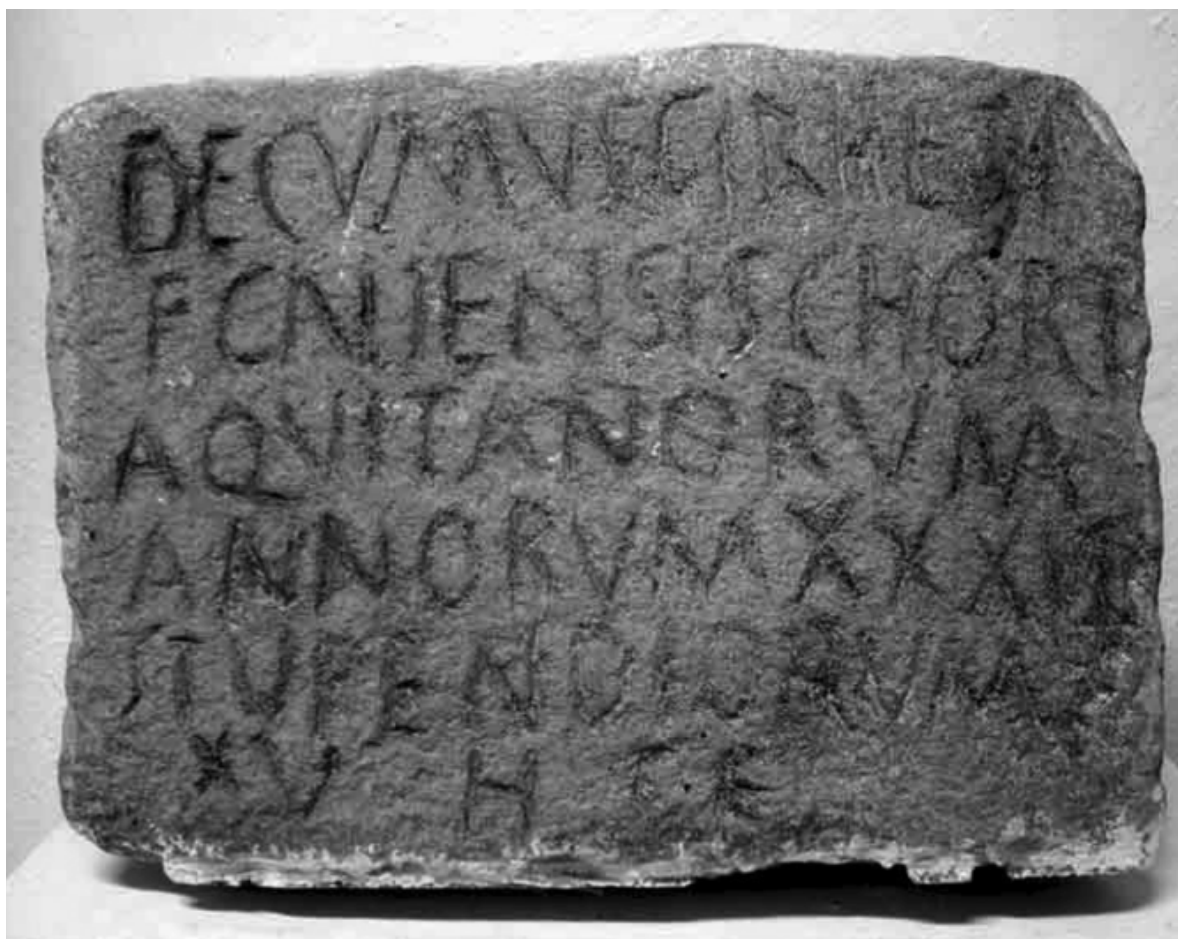 DECVMVS
F CNUENSIS CHORT
AQVITANORVM
ANNORVM XXXII
STUPENDIORVM
XV H F